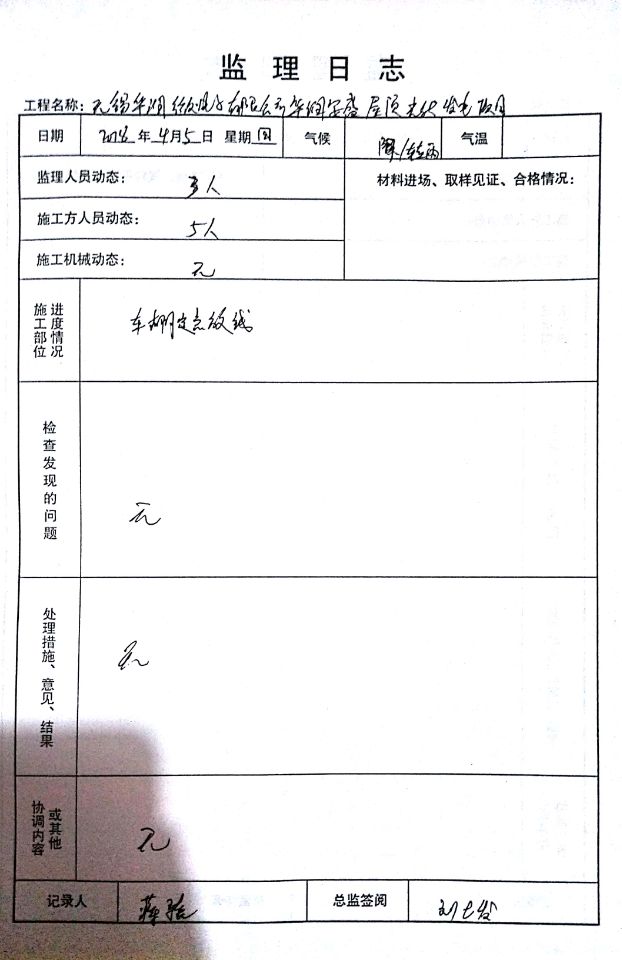 监理日志
工程名称: 无锡华润微电子有限公司华润安盛屋顶光伏发电项目
日期 年4月5日 星期日 气候 阴/转雨 气温
监理人员动态: 3人 材料进场、取样见证、合格情况:
施工方人员动态: 5人
施工机械动态: 无
施工部位进度情况 车棚定点放线
检查发现的问题 无
处理措施、意见、结果 无
协调内容或其他 无
记录人 总监签阅